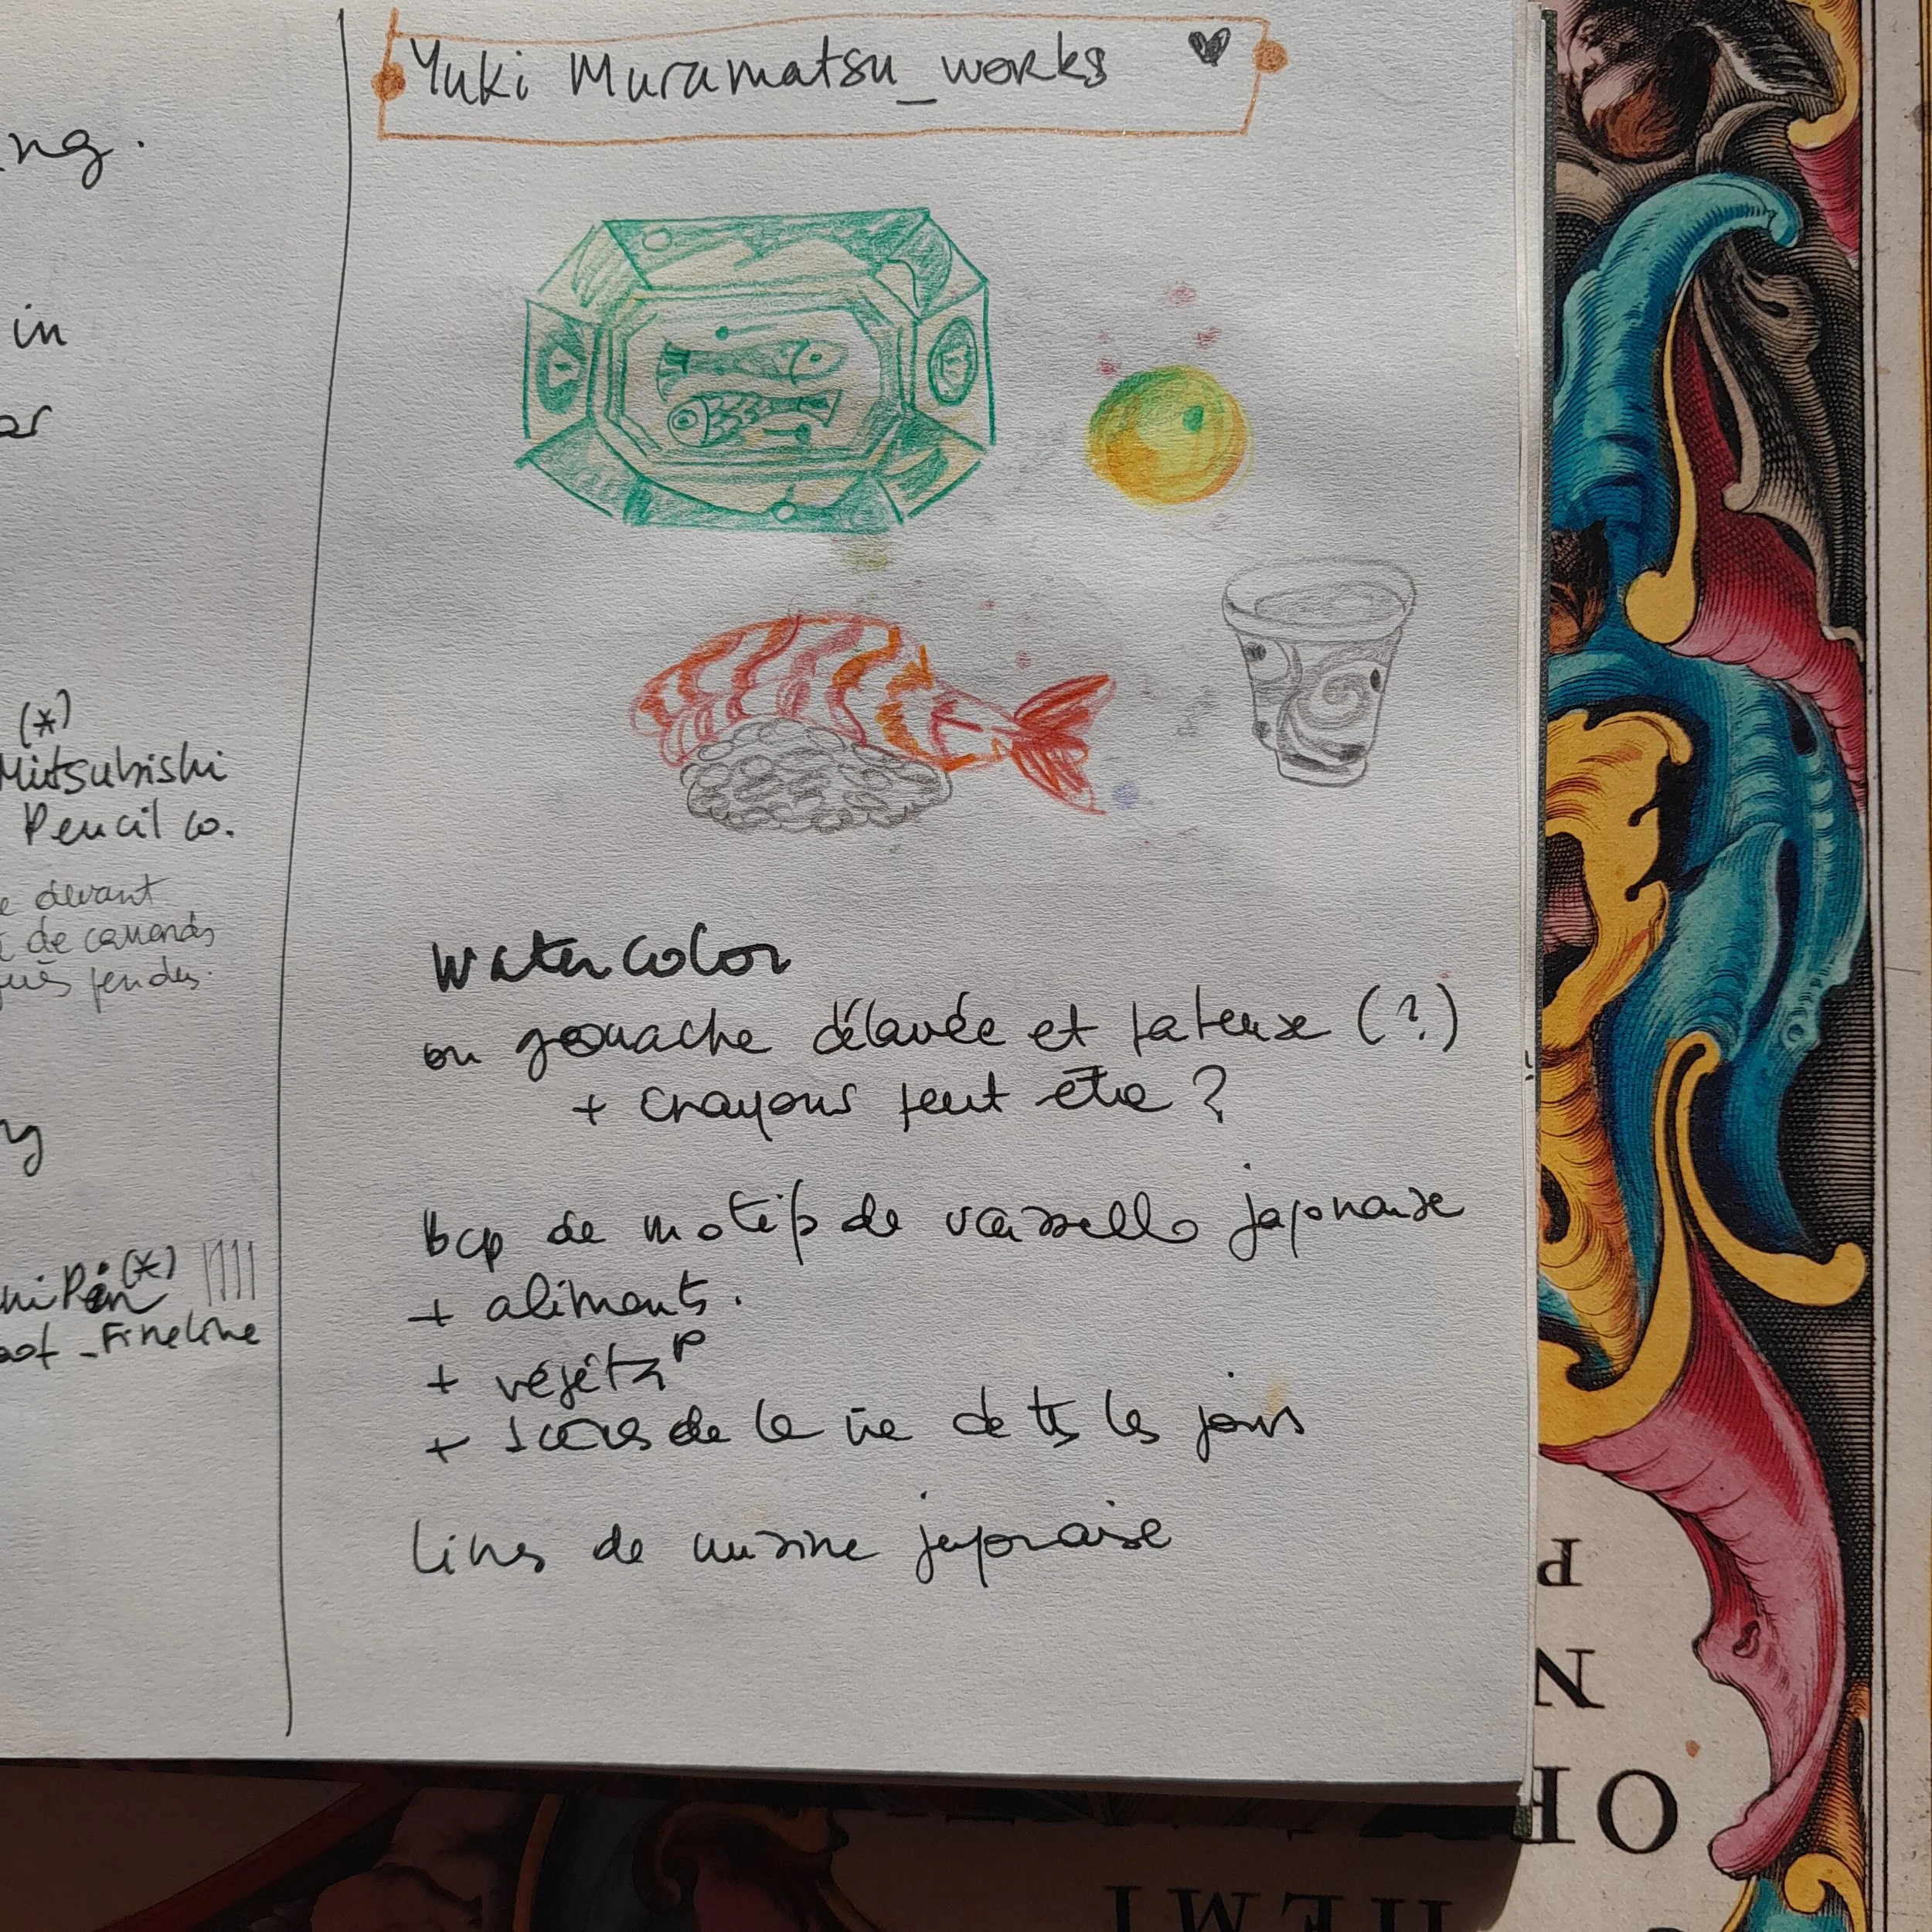 ng.
in
(*)
Mitsubishi
Pencil co.
devant
de canards
Pin(*)
Fineline
Yuki Muramatsu_works
Watercolor
ou gouache délavée et pateuse (?)
+ crayons peut être ?
bcp de motifs de vaisselle japonaise
+ aliments.
+ végétaP
+ scènes de la vie de ts les jours
livres de cuisine japonaise
P
N
OF